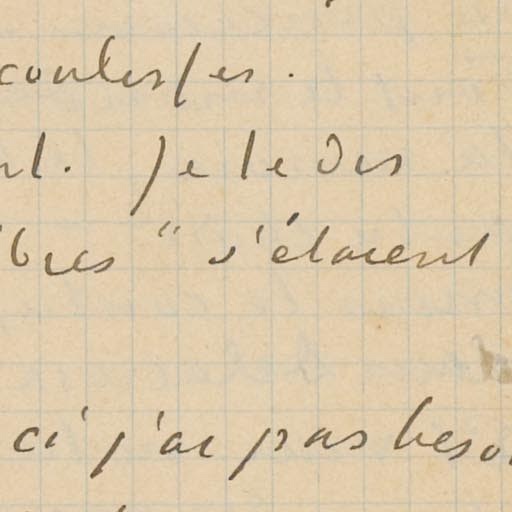 nt. Je le dis
bres" s'étaient
ci j'ai pas beso